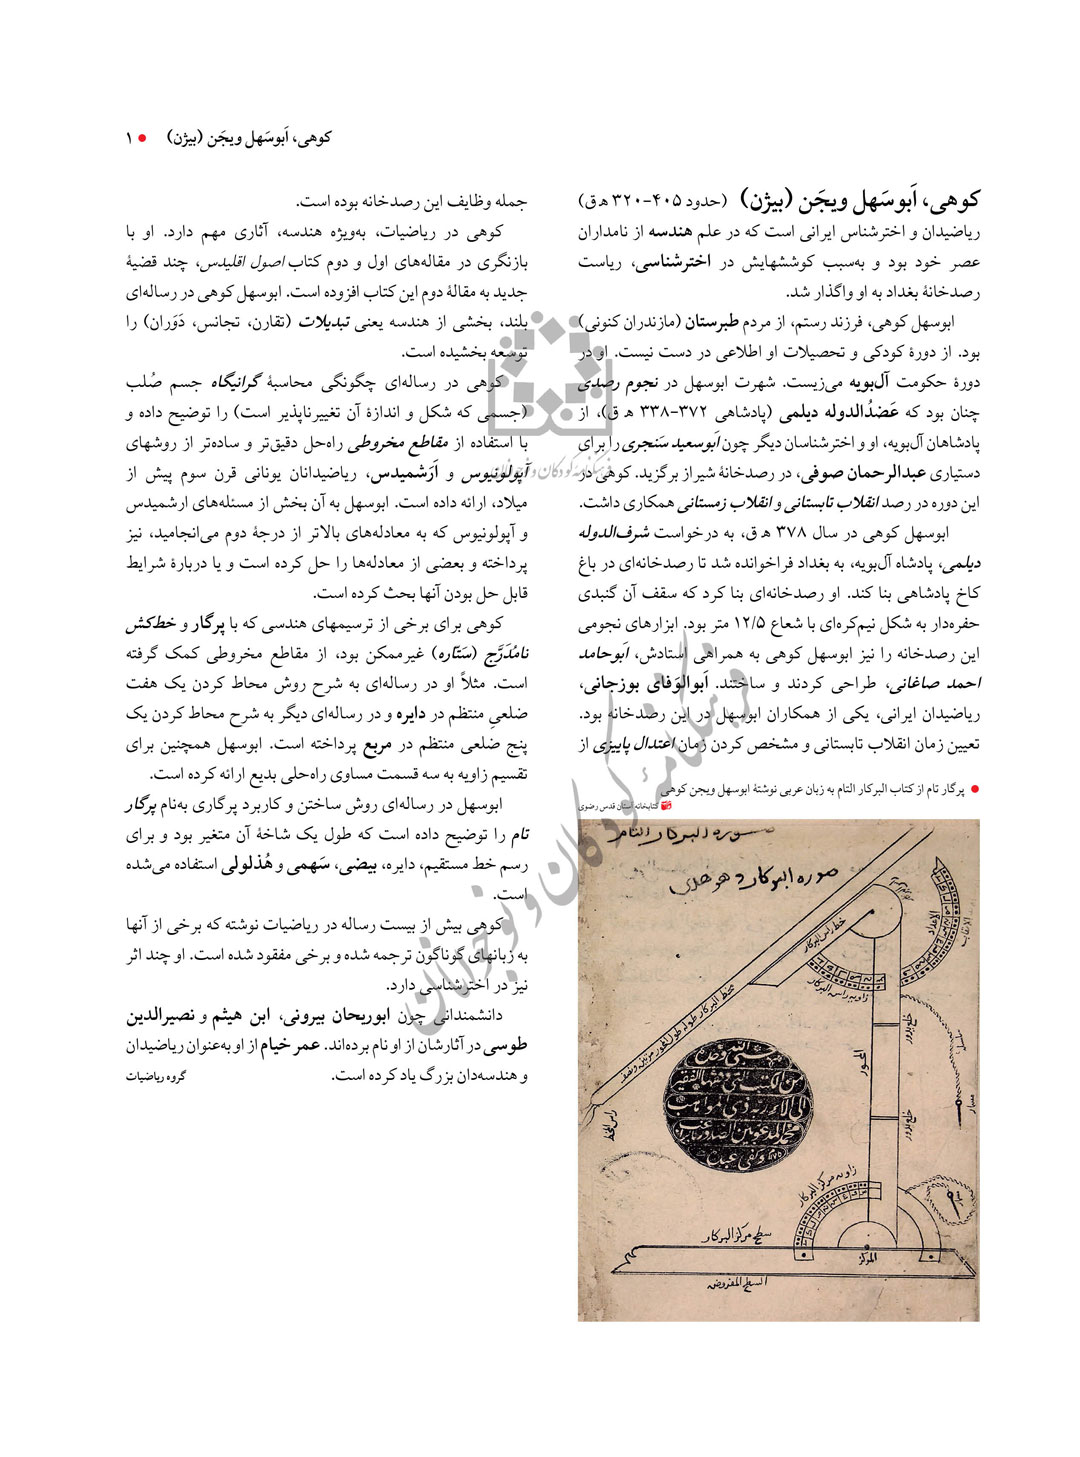 کوهی، اَبوسَهل ویجَن (بیژن) ● ۱
کوهی، اَبوسَهل ویجَن (بیژن) (حدود ۴۰۵-۳۲۰ ه‍ ق)
ریاضیدان و اخترشناس ایرانی است که در علم هندسه از نامداران
عصر خود بود و به‌سبب کوششهایش در اخترشناسی، ریاست
رصدخانهٔ بغداد به او واگذار شد.
ابوسهل کوهی، فرزند رستم، از مردم طبرستان (مازندران کنونی)
بود. از دورهٔ کودکی و تحصیلات او اطلاعی در دست نیست. او در
دورهٔ حکومت آل‌بویه می‌زیست. شهرت ابوسهل در نجوم رصدی
چنان بود که عَضدُالدوله دیلمی (پادشاهی ۳۷۲-۳۳۸ ه‍ ق)، از
پادشاهان آل‌بویه، او و اخترشناسان دیگر چون اَبوسعید سَنجری را برای
دستیاری عبدالرحمان صوفی، در رصدخانهٔ شیراز برگزید. کوهی در
این دوره در رصد انقلاب تابستانی و انقلاب زمستانی همکاری داشت.
ابوسهل کوهی در سال ۳۷۸ ه‍ ق، به درخواست شرف‌الدوله
دیلمی، پادشاه آل‌بویه، به بغداد فراخوانده شد تا رصدخانه‌ای در باغ
کاخ پادشاهی بنا کند. او رصدخانه‌ای بنا کرد که سقف آن گنبدی
حفره‌دار به شکل نیم‌کره‌ای با شعاع ۱۲/۵ متر بود. ابزارهای نجومی
این رصدخانه را نیز ابوسهل کوهی به همراهی استادش، اَبوحامد
احمد صاغانی، طراحی کردند و ساختند. اَبوالوَفای بوزجانی،
ریاضیدان ایرانی، یکی از همکاران ابوسهل در این رصدخانه بود.
تعیین زمان انقلاب تابستانی و مشخص کردن زمان اعتدال پاییزی از
● پرگار تام از کتاب البرکار التام به زبان عربی نوشتهٔ ابوسهل ویجن کوهی
کتابخانه آستان قدس رضوی
صورة البركار التام
صوره البركار وهو هذى
خط راس البركار
زاويه راس البركار
المحور
راس الخط
زاويه مركز البركار
سطح مركز البركار
المركز
السطح المفروض
جمله وظایف این رصدخانه بوده است.
کوهی در ریاضیات، به‌ویژه هندسه، آثاری مهم دارد. او با
بازنگری در مقاله‌های اول و دوم کتاب اصول اقلیدس، چند قضیهٔ
جدید به مقالهٔ دوم این کتاب افزوده است. ابوسهل کوهی در رساله‌ای
بلند، بخشی از هندسه یعنی تبدیلات (تقارن، تجانس، دَوَران) را
توسعه بخشیده است.
کوهی در رساله‌ای چگونگی محاسبهٔ گرانیگاه جسم صُلب
(جسمی که شکل و اندازهٔ آن تغییرناپذیر است) را توضیح داده و
با استفاده از مقاطع مخروطی راه‌حل دقیق‌تر و ساده‌تر از روشهای
آپولونیوس و اَرَشمیدس، ریاضیدانان یونانی قرن سوم پیش از
میلاد، ارائه داده است. ابوسهل به آن بخش از مسئله‌های ارشمیدس
و آپولونیوس که به معادله‌های بالاتر از درجهٔ دوم می‌انجامید، نیز
پرداخته و بعضی از معادله‌ها را حل کرده است و یا دربارهٔ شرایط
قابل حل بودن آنها بحث کرده است.
کوهی برای برخی از ترسیمهای هندسی که با پرگار و خط‌کش
نامُدَرَّج (سَتّاره) غیرممکن بود، از مقاطع مخروطی کمک گرفته
است. مثلاً او در رساله‌ای به شرح روش محاط کردن یک هفت
ضلعیِ منتظم در دایره و در رساله‌ای دیگر به شرح محاط کردن یک
پنج ضلعی منتظم در مربع پرداخته است. ابوسهل همچنین برای
تقسیم زاویه به سه قسمت مساوی راه‌حلی بدیع ارائه کرده است.
ابوسهل در رساله‌ای روش ساختن و کاربرد پرگاری به‌نام پرگار
تام را توضیح داده است که طول یک شاخهٔ آن متغیر بود و برای
رسم خط مستقیم، دایره، بیضی، سَهمی و هُذلولی استفاده می‌شده
است.
کوهی بیش از بیست رساله در ریاضیات نوشته که برخی از آنها
به زبانهای گوناگون ترجمه شده و برخی مفقود شده است. او چند اثر
نیز در اخترشناسی دارد.
دانشمندانی چون ابوریحان بیرونی، ابن هیثم و نصیرالدین
طوسی در آثارشان از او نام برده‌اند. عمر خیام از او به‌عنوان ریاضیدان
و هندسه‌دان بزرگ یاد کرده است. گروه ریاضیات
فرهنگنامهٔ کودکان و نوجوانان
فرهنگنامهٔ کودکان و نوجوانان